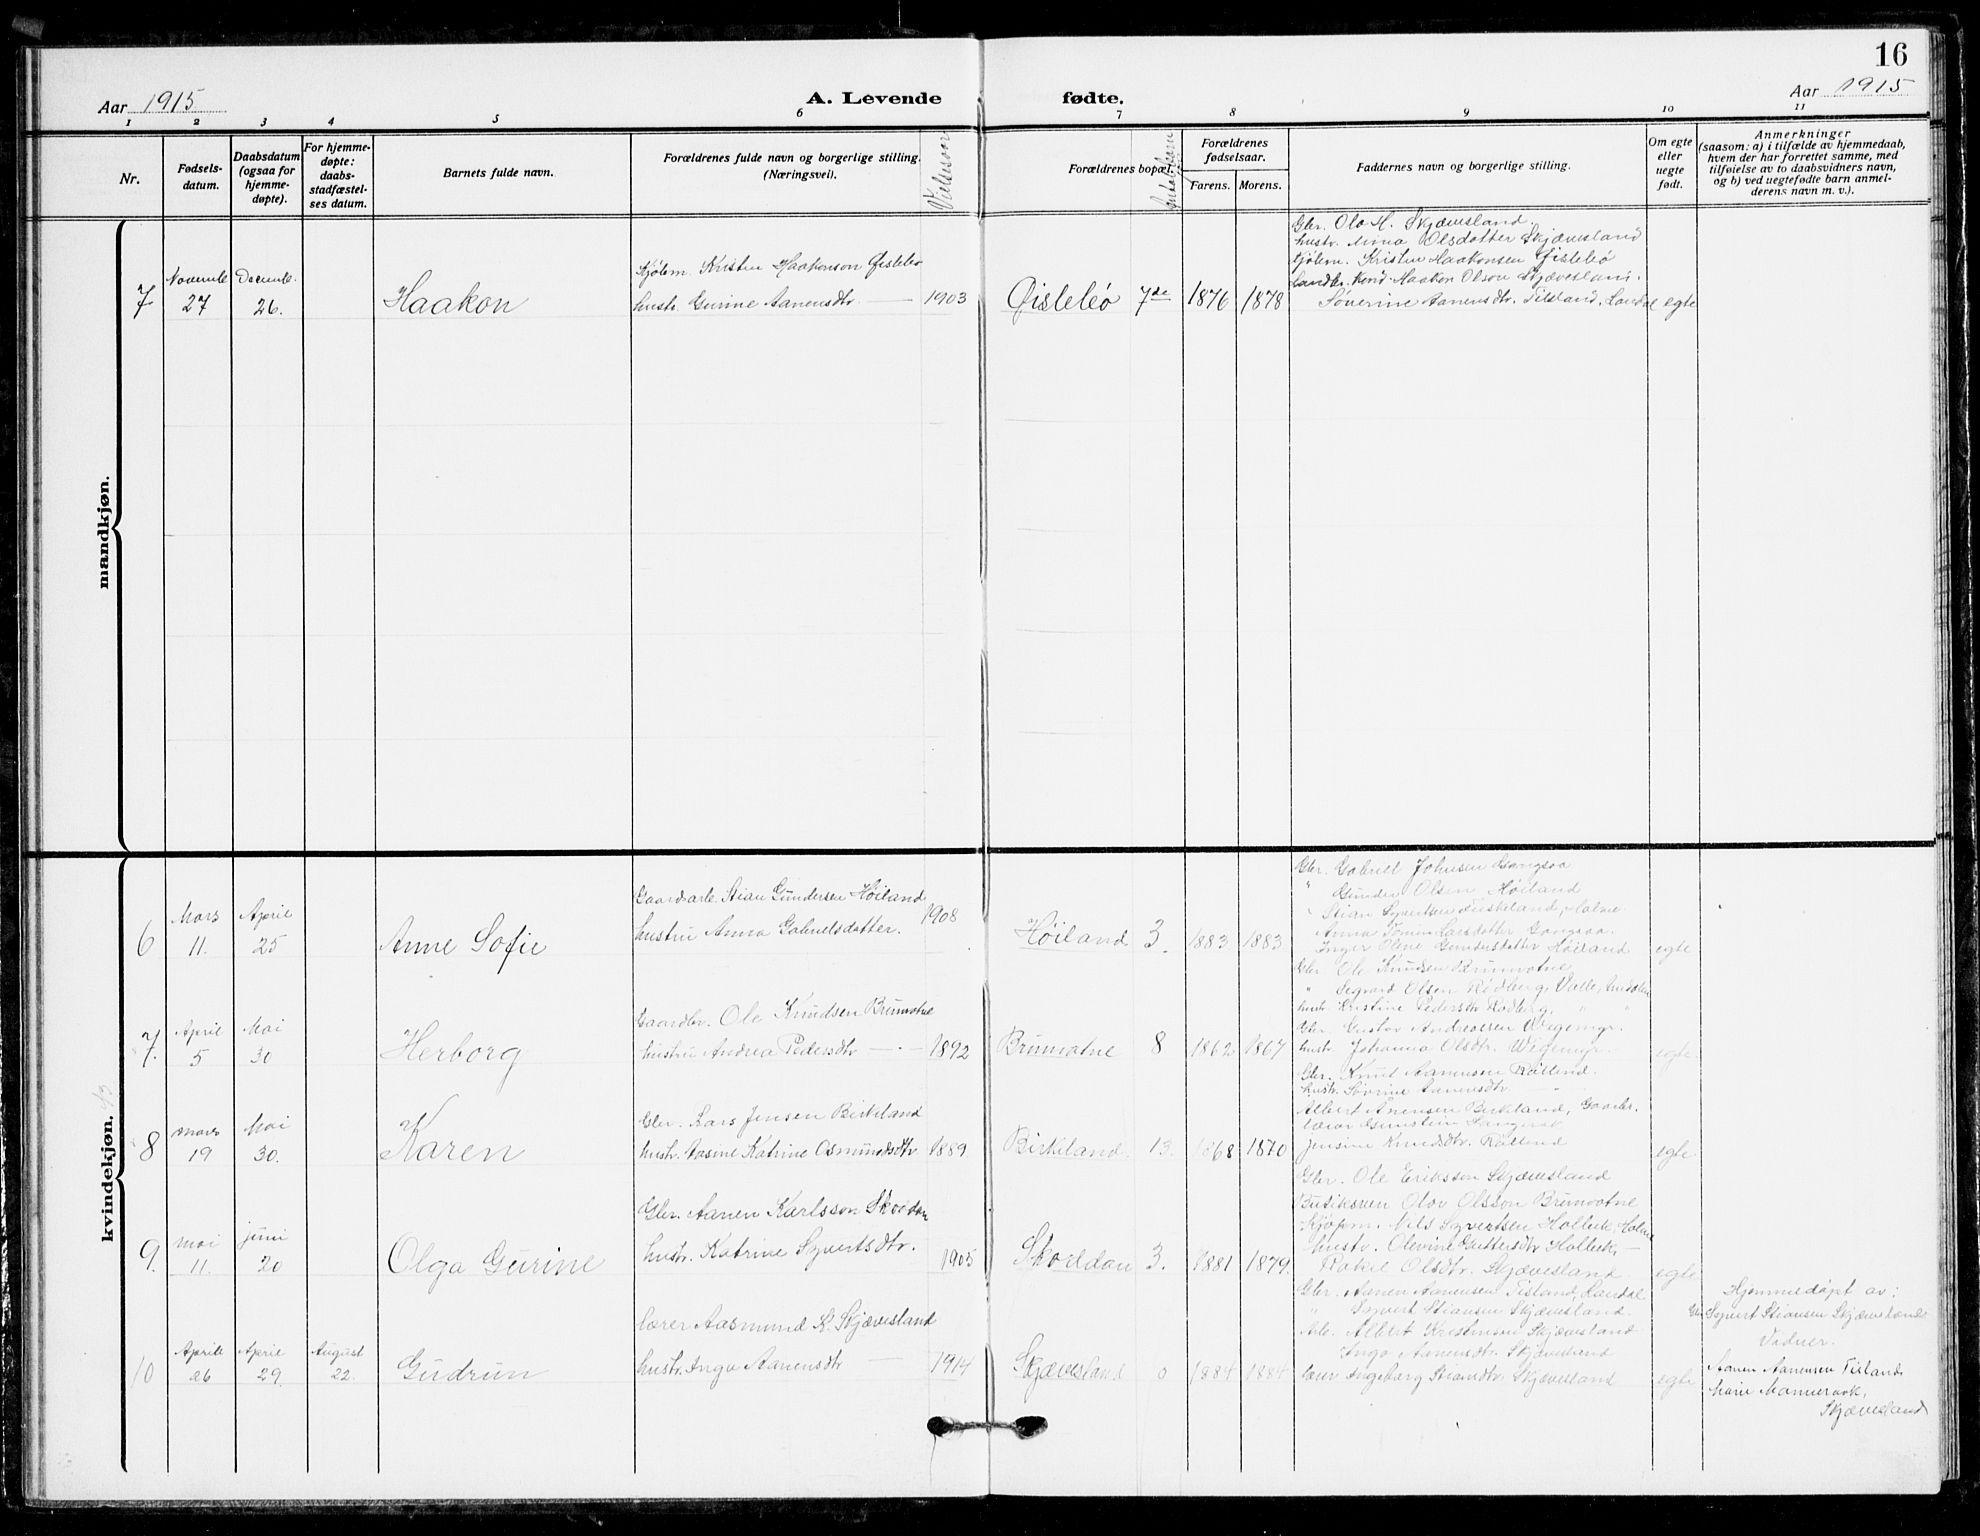 16
Aar 1915
A. Levende fødte.
Aar 1915
1 2 3 4 5 6 7 8 9 10 11
Nr.
Fødsels-
datum.
Daabsdatum
(ogsaa for
hjemme-
døpte).
For hjemme-
døpte:
daabs-
stadfæstel-
ses datum.
Barnets fulde navn.
Forældrenes fulde navn og borgerlige stilling.
(Næringsvei).
Vielsesaar
Forældrenes bopæl.
Forældrenes
fødselsaar.
Farens. Morens.
Faddernes navn og borgerlige stilling.
Om egte
eller
uegte
født.
Anmerkninger
(saasom: a) i tilfælde av hjemmedaab,
hvem der har forrettet samme, med
tilføielse av to daabsvidners navn,
og b) ved uegtefødte barn anmel-
derens navn m. v.).
mandkjøn.
7
Novembe
27
Decembe.
26.
Haakon
Kjølem. Kristen Haakonson Øislebø
hustr. Gurine Aanensdtr. 1903
Øislebø 7de 1876 1878
Gbr. Ola H. Skjævesland
hustr. Anna Olsdotter Skjævesland
Kjølem. Kristen Haakonsen Øislebø
Haakon Olson Skjævesland.
Søverine Aanensdtr. Tisland, Laudal
egte
kvindekjøn.
6
Mars
11.
April
25
Anne Sofie
Gaardarb. Stian Gundersen Høiland
hustru Anna Gabrielsdatter.
1908
Høiland 3. 1883 1883
Gbr. Gabriel Johnsen
" Gunder Olsen Høiland
" Stian Syvertsen
Anna Larsdotter
Inger Olene Gundersdatter Høiland
egte
7.
April
5
Mai
30
Herborg
Gaardbr. Ole Knudsen Brunvatne
hustru Andrea Pedersdtr 1892
Brunvatne 8 1862 1867
Gbr. Ole Knudsen Brunvatne
" Olsen Rødberg, Valle,
hustr. Kristine Pedersdtr Rødberg, " "
Gbr. Gustav Andreassen Wigemyr.
hustr. Johanna Olsdtr. Wigemyr.
egte
8
Mars
19
Mai
30.
Karen
Gbr. Lars Jensen Birkeland
hustr. Katrine Osmundsdtr 1889.
Birkeland. 13. 1868 1870
Gbr. Knut Aanensen
hustr. Sørine Aanensdtr
Albert Anensen Birkeland, Gaardbr.
Jensine Knudsdtr.
egte
9.
Mai
11.
Juni
20
Olga Gurine
Gbr. Aanen Karlsson Skoddan
hustr. Katrine Syvertsdtr. 1905
Skoddan 3. 1881 1879.
Gbr. Ole Eriksson Skjævesland
Olav Olsson Brunvatne
Kjøpm. Nils Syvertsen
hustr. Olevine
Rakel Olsdtr. Skjævesland
egte
10
April
26
April
29.
August
22.
Gudrun
Lærer Aasmund K. Skjævesland
hustr. Inga Aanensdtr 1914
Skjævesland 0 1884 1884
Gbr. Aanen Aanensen Tisland, Laudal
" Syvert Stiansen Skjævesland.
Albert Kristensen Skjævesland
Inga Aanensdtr. Skjævesland
Ingeborg Stiansdtr. Skjævesland
egte
Hjemmedøpt av:
Syvert Stiansen Skjævesland
Vidner.
Aanen Aanensen Tisland
Marie
Skjævesland